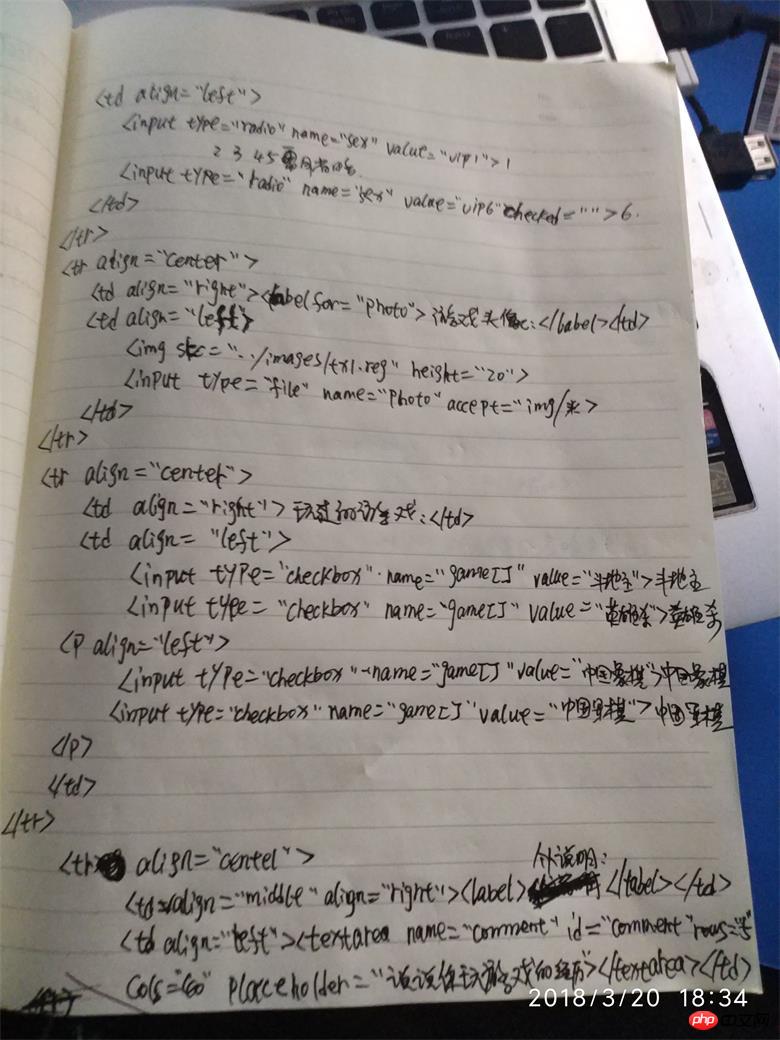 <td align="left">
<input type="radio" name="sex" value="vip1">1
2 3 4 5
<input type="radio" name="sex" value="vip6" checked="">6.
</td>
</tr>
<tr align="center">
<td align="right"><label for="photo">游戏头像:</label></td>
<td align="left">
<img src="../images/tx1.reg" height="20">
<input type="file" name="photo" accept="img/*>
</td>
</tr>
<tr align="center">
<td align="right">玩过的游戏:</td>
<td align="left">
<input type="checkbox" name="game[]" value="斗地主">斗地主
<input type="checkbox" name="game[]" value="英雄杀">英雄杀
<p align="left">
<input type="checkbox" name="game[]" value="中国象棋">中国象棋
<input type="checkbox" name="game[]" value="中国军棋">中国军棋
</p>
</td>
</tr>
<tr align="center">
个人说明:
<td align="middle" align="right"><label></label></td>
<td align="left"><textarea name="comment" id="comment" rows="5"
cols="60" placeholder="谈谈你玩游戏的经历"></textarea></td>
2018/3/20 18:34
php 中文网